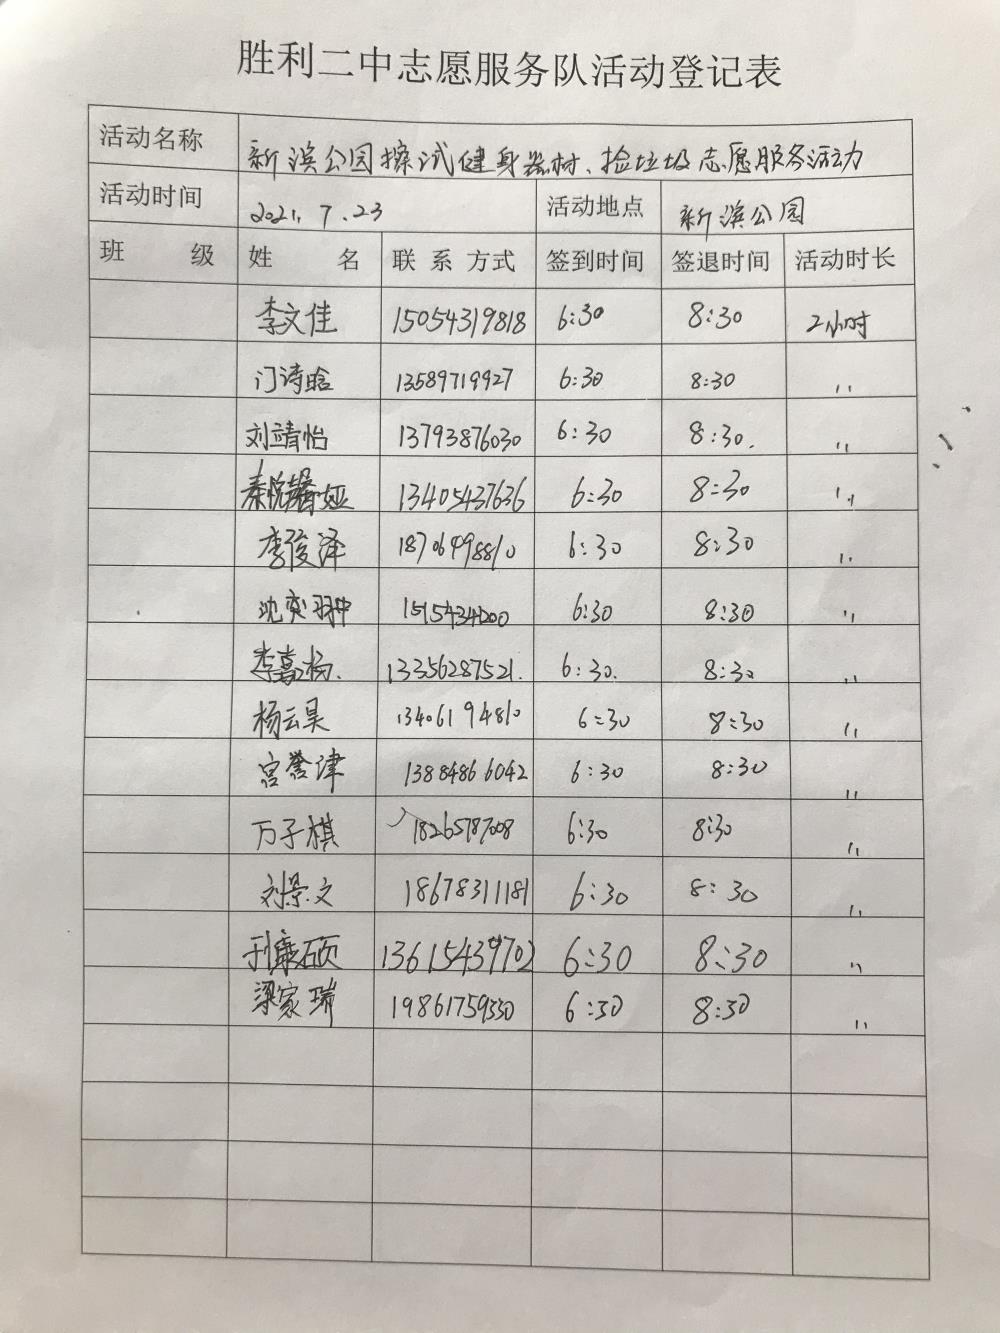 胜利二中志愿服务队活动登记表
活动名称 新滨公园擦试健身器材、捡垃圾志愿服务活动
活动时间 2021.7.23 活动地点 新滨公园
班 级 姓 名 联 系 方式 签到时间 签退时间 活动时长
李文佳 15054319818 6:30 8:30 2小时
门诗晗 13589719927 6:30 8:30 ''
刘靖怡 13793876030 6:30 8:30. ''
秦悦馨娅 13405437636 6:30 8:30 ''
李俊泽 18706498810 6:30 8:30 ''
沈奕翀 6:30 8:30 ''
李嘉杨. 13356287521. 6:30. 8:30 ''
杨云昊 13406194810 6:30 8:30 ''
宫誉津 13884866042 6:30 8:30 ''
万子棋 18265787008 6:30 8:30 ''
刘景文 18678311181 6:30 8:30 ''
康硕 13615439702 6:30 8:30 ''
梁家瑞 19861759330 6:30 8:30 ''